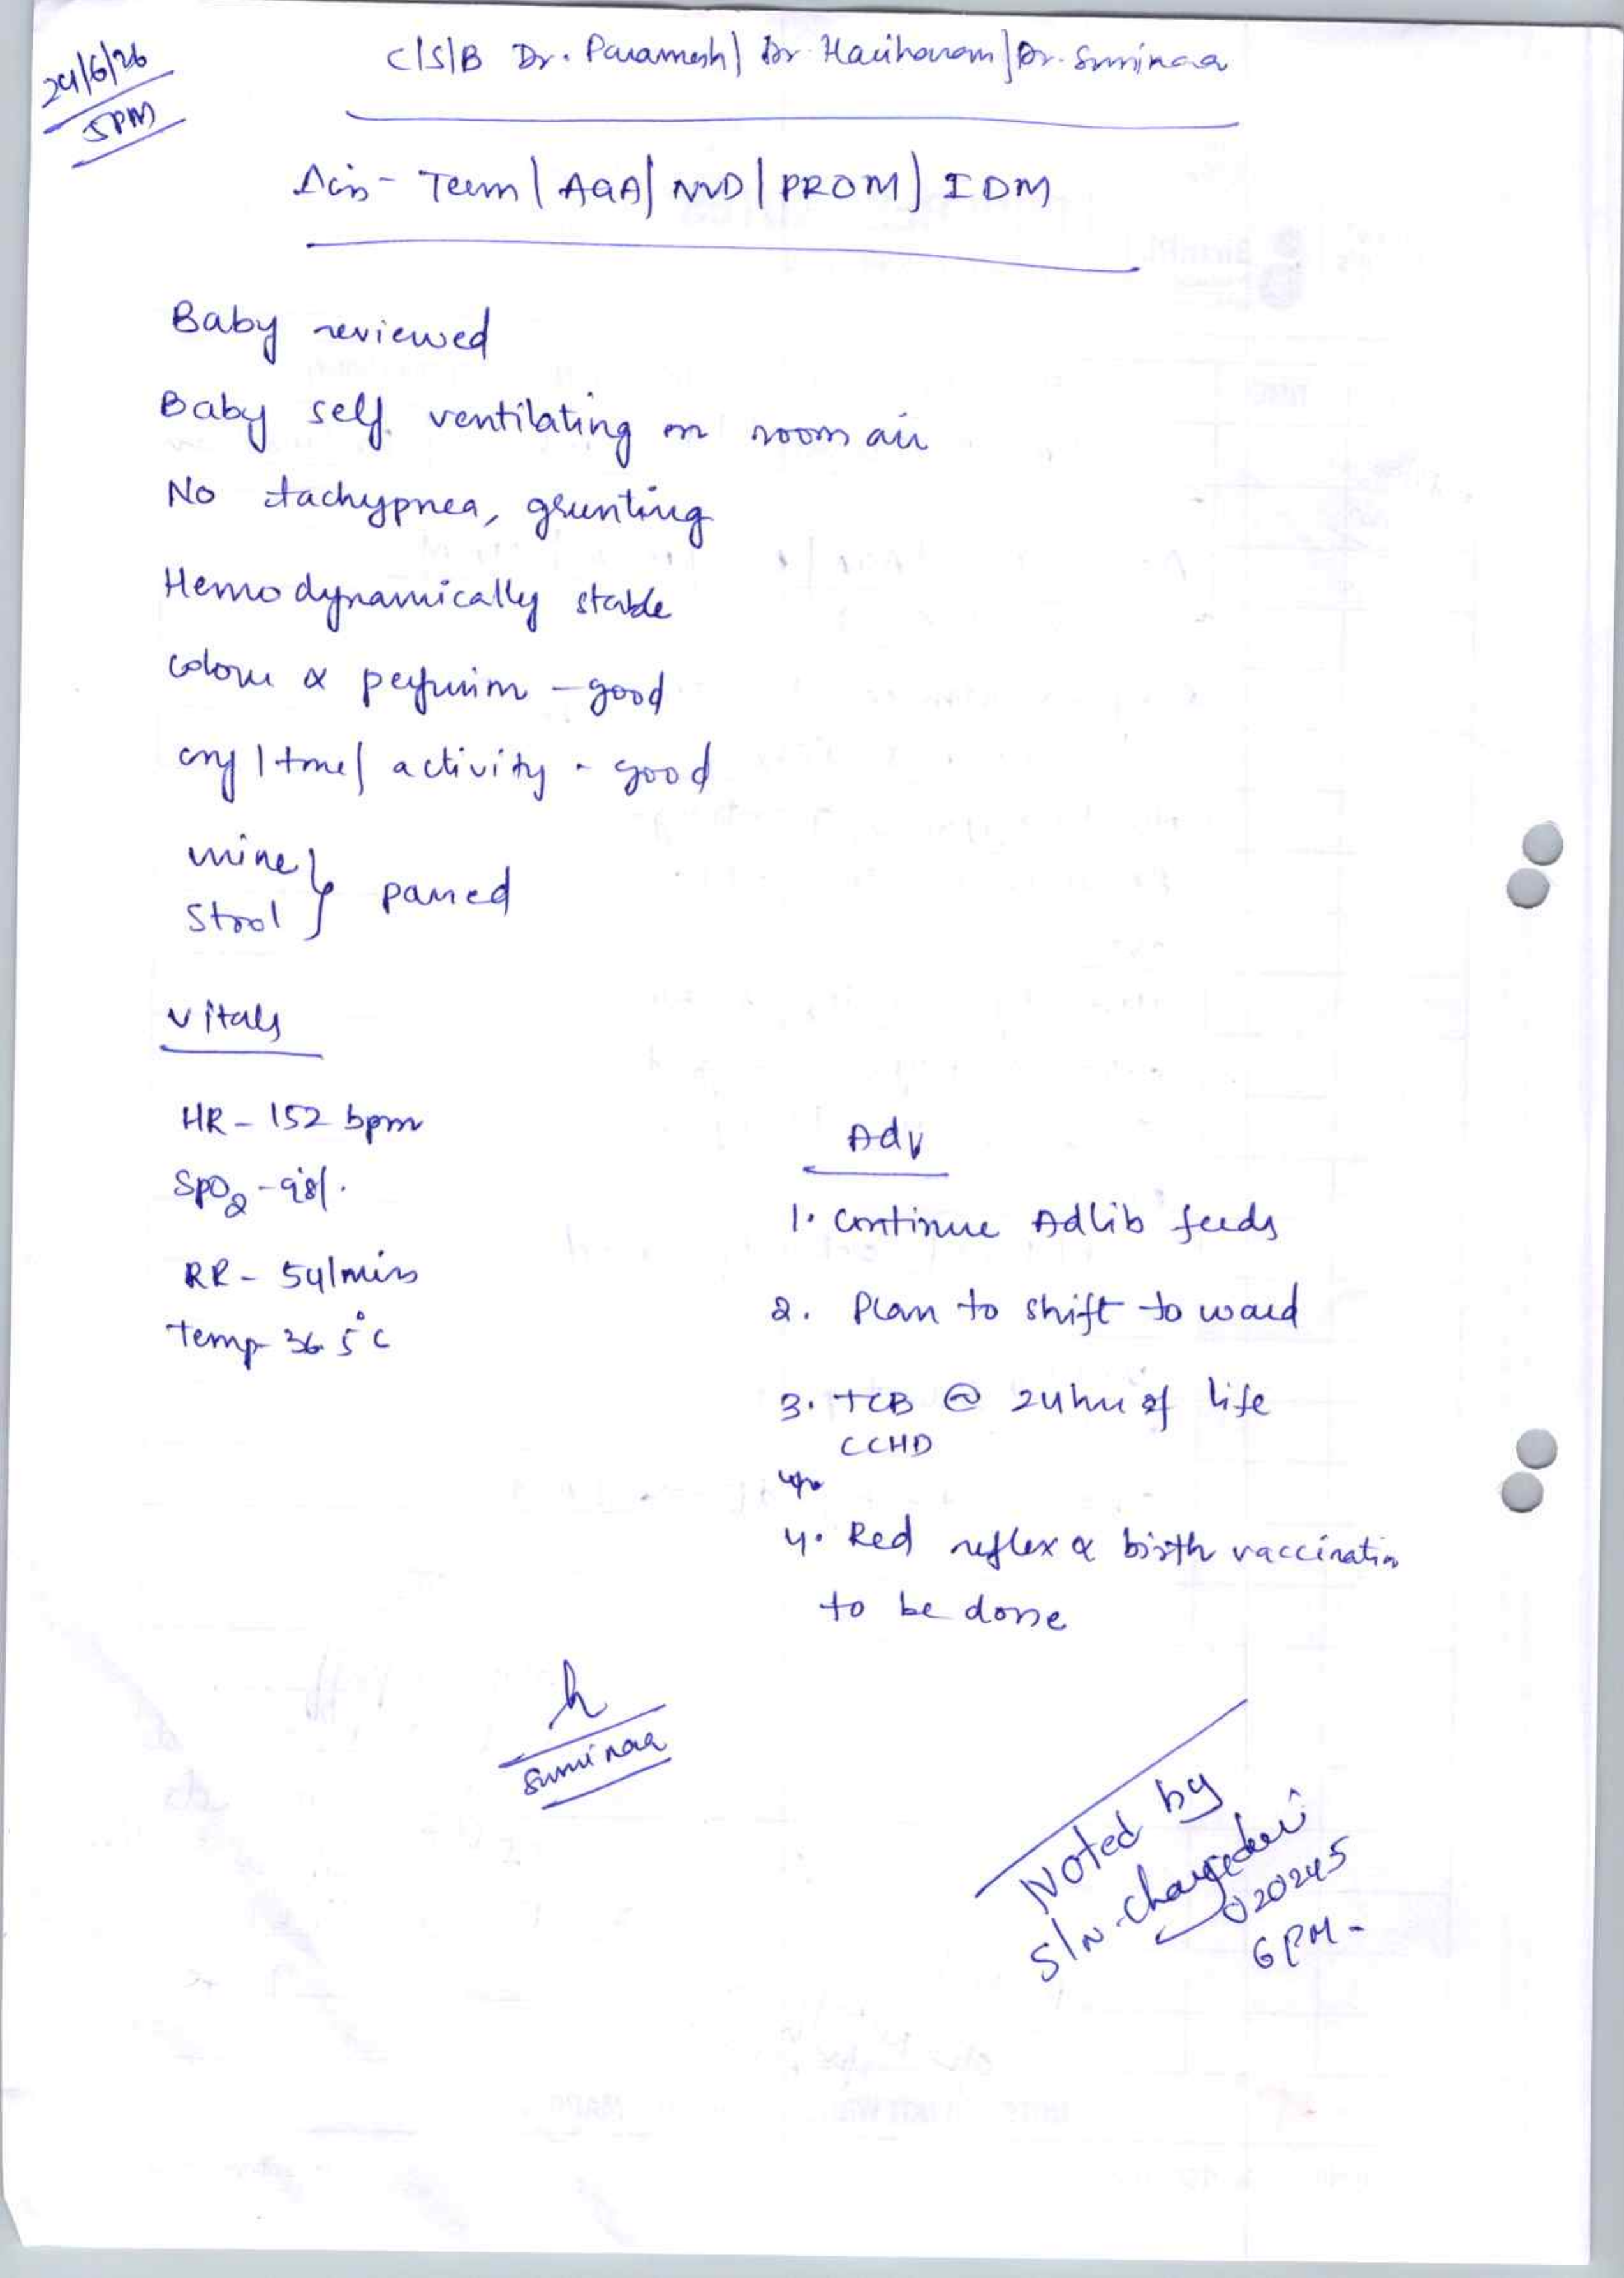 24/6/26
5PM
C/S/B Dr. Paramesh| Dr. Hariharan| Dr. Suminaa
Δsis - Term | AGA| NVD | PROM| IDM
Baby reviewed
Baby self ventilating on room air
No tachypnea, grunting
Hemodynamically stable
colour & perfusion - good
cry | tone| activity - good
urine }
stool } passed
Vitals
HR - 152 bpm
SpO2 - 98%.
RR - 54/min
Temp 36.5°C
Adv
1. Continue Adlib feeds
2. Plan to shift to ward
3. TCB @ 24 hrs of life
CCHD
4. Red reflex & birth vaccination
to be done
Suminaa
Noted by
S/N
020245
6PM-